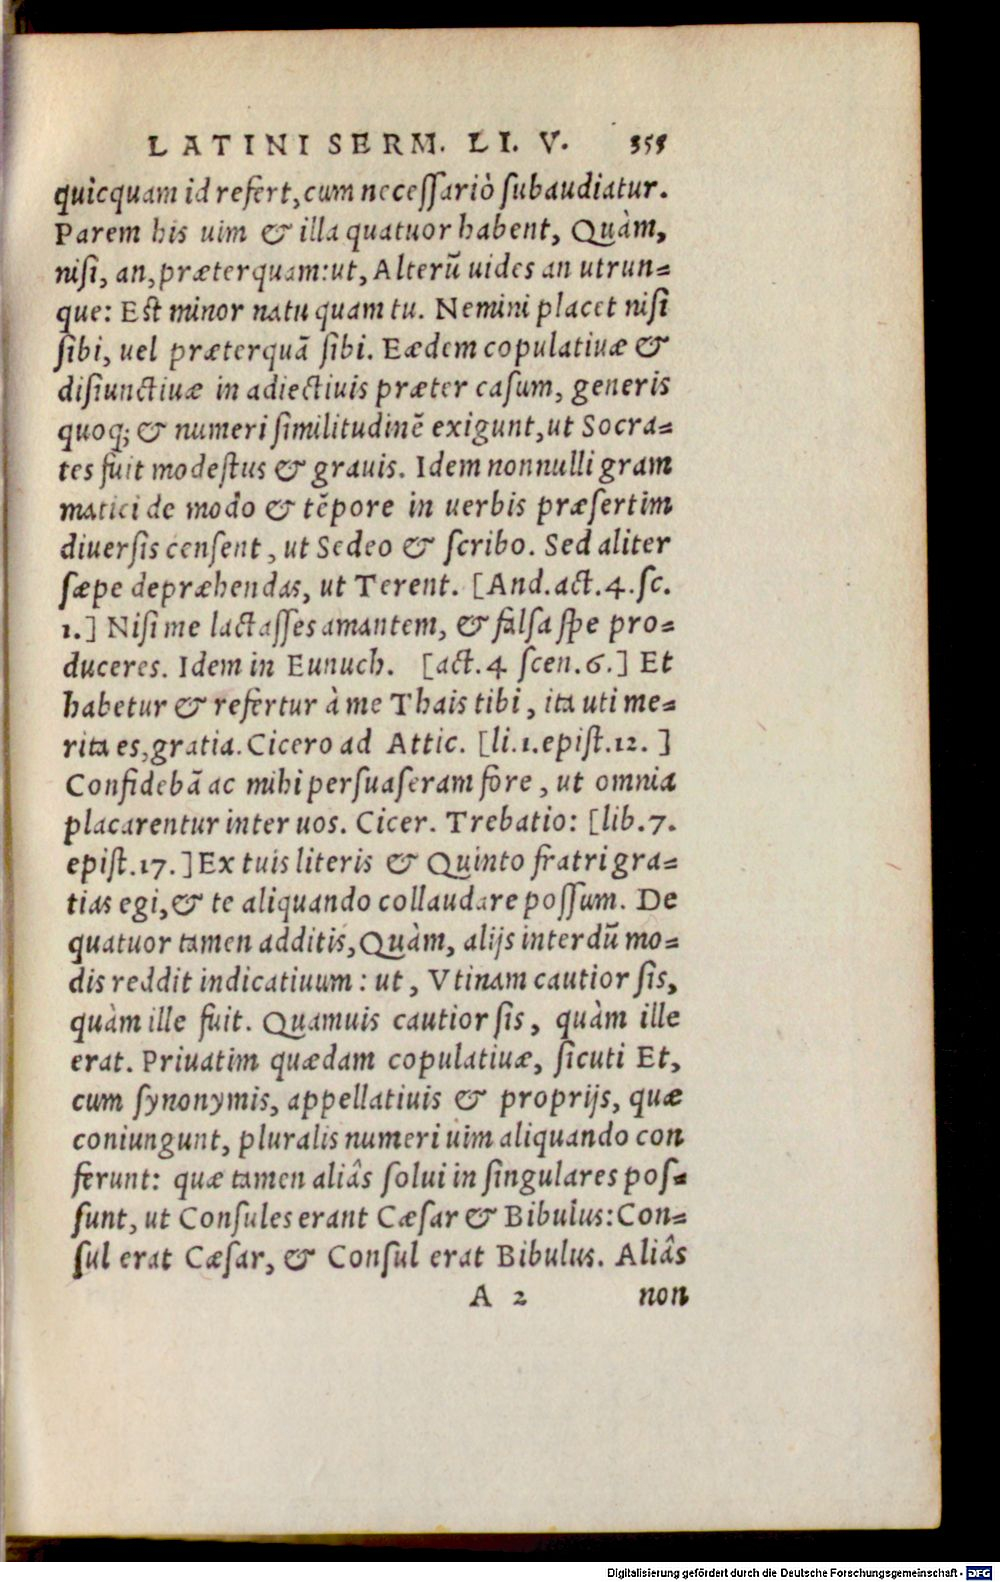 LATINI SERM. LI. V. 355
quicquam id refert, cum neceſſariò ſubaudiatur.
Parem his uim & illa quatuor habent, Quàm,
niſi, an, præterquam: ut, Alterū uides an utrun=
que: Est minor natu quam tu. Nemini placet niſi
ſibi, uel præterquā ſibi. Eædem copulatiuæ &
diſiunctiuæ in adiectiuis præter caſum, generis
quoq; & numeri ſimilitudinē exigunt, ut Socra=
tes fuit modeſtus & grauis. Idem nonnulli gram
matici de modo & tēpore in uerbis præſertim
diuerſis cenſent, ut Sedeo & ſcribo. Sed aliter
ſæpe depræhendas, ut Terent. [And. act. 4. ſc.
1.] Niſi me lactaſſes amantem, & falſa ſpe pro=
duceres. Idem in Eunuch. [act. 4 ſcen. 6.] Et
habetur & refertur à me Thais tibi, ita uti me=
rita es, gratia. Cicero ad Attic. [li. 1. epiſt. 12. ]
Confidebā ac mihi perſuaſeram fore, ut omnia
placarentur inter uos. Cicer. Trebatio: [lib. 7.
epiſt. 17.] Ex tuis literis & Quinto fratri gra=
tias egi, & te aliquando collaudare poſſum. De
quatuor tamen additis, Quàm, alijs interdū mo=
dis reddit indicatiuum: ut, Vtinam cautior ſis,
quàm ille fuit. Quamuis cautior ſis, quàm ille
erat. Priuatim quædam copulatiuæ, ſicuti Et,
cum ſynonymis, appellatiuis & proprijs, quæ
coniungunt, pluralis numeri uim aliquando con
ferunt: quæ tamen aliâs ſolui in ſingulares poſ=
ſunt, ut Conſules erant Cæſar & Bibulus: Con=
ſul erat Cæſar, & Conſul erat Bibulus. Aliâs
A 2 non
Digitalisierung gefördert durch die Deutsche Forschungsgemeinschaft - DFG